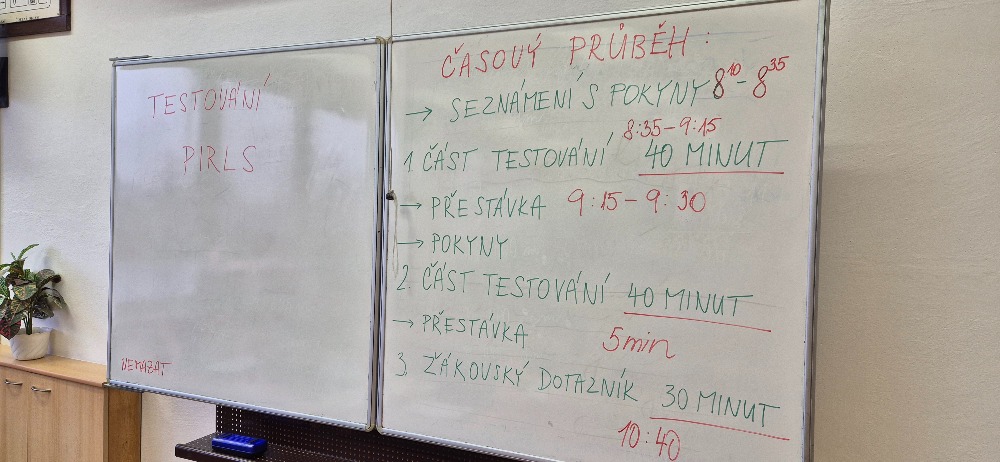 TESTOVÁNÍ
PIRLS
NEMAZAT
ČASOVÝ PRŮBĚH:
→ SEZNÁMENÍ S POKYNY 8¹⁰ - 8³⁵
8:35 - 9:15
1. ČÁST TESTOVÁNÍ 40 MINUT
→ PŘESTÁVKA 9:15 - 9:30
→ POKYNY
2. ČÁST TESTOVÁNÍ 40 MINUT
→ PŘESTÁVKA 5min
3. ŽÁKOVSKÝ DOTAZNÍK 30 MINUT
10:40